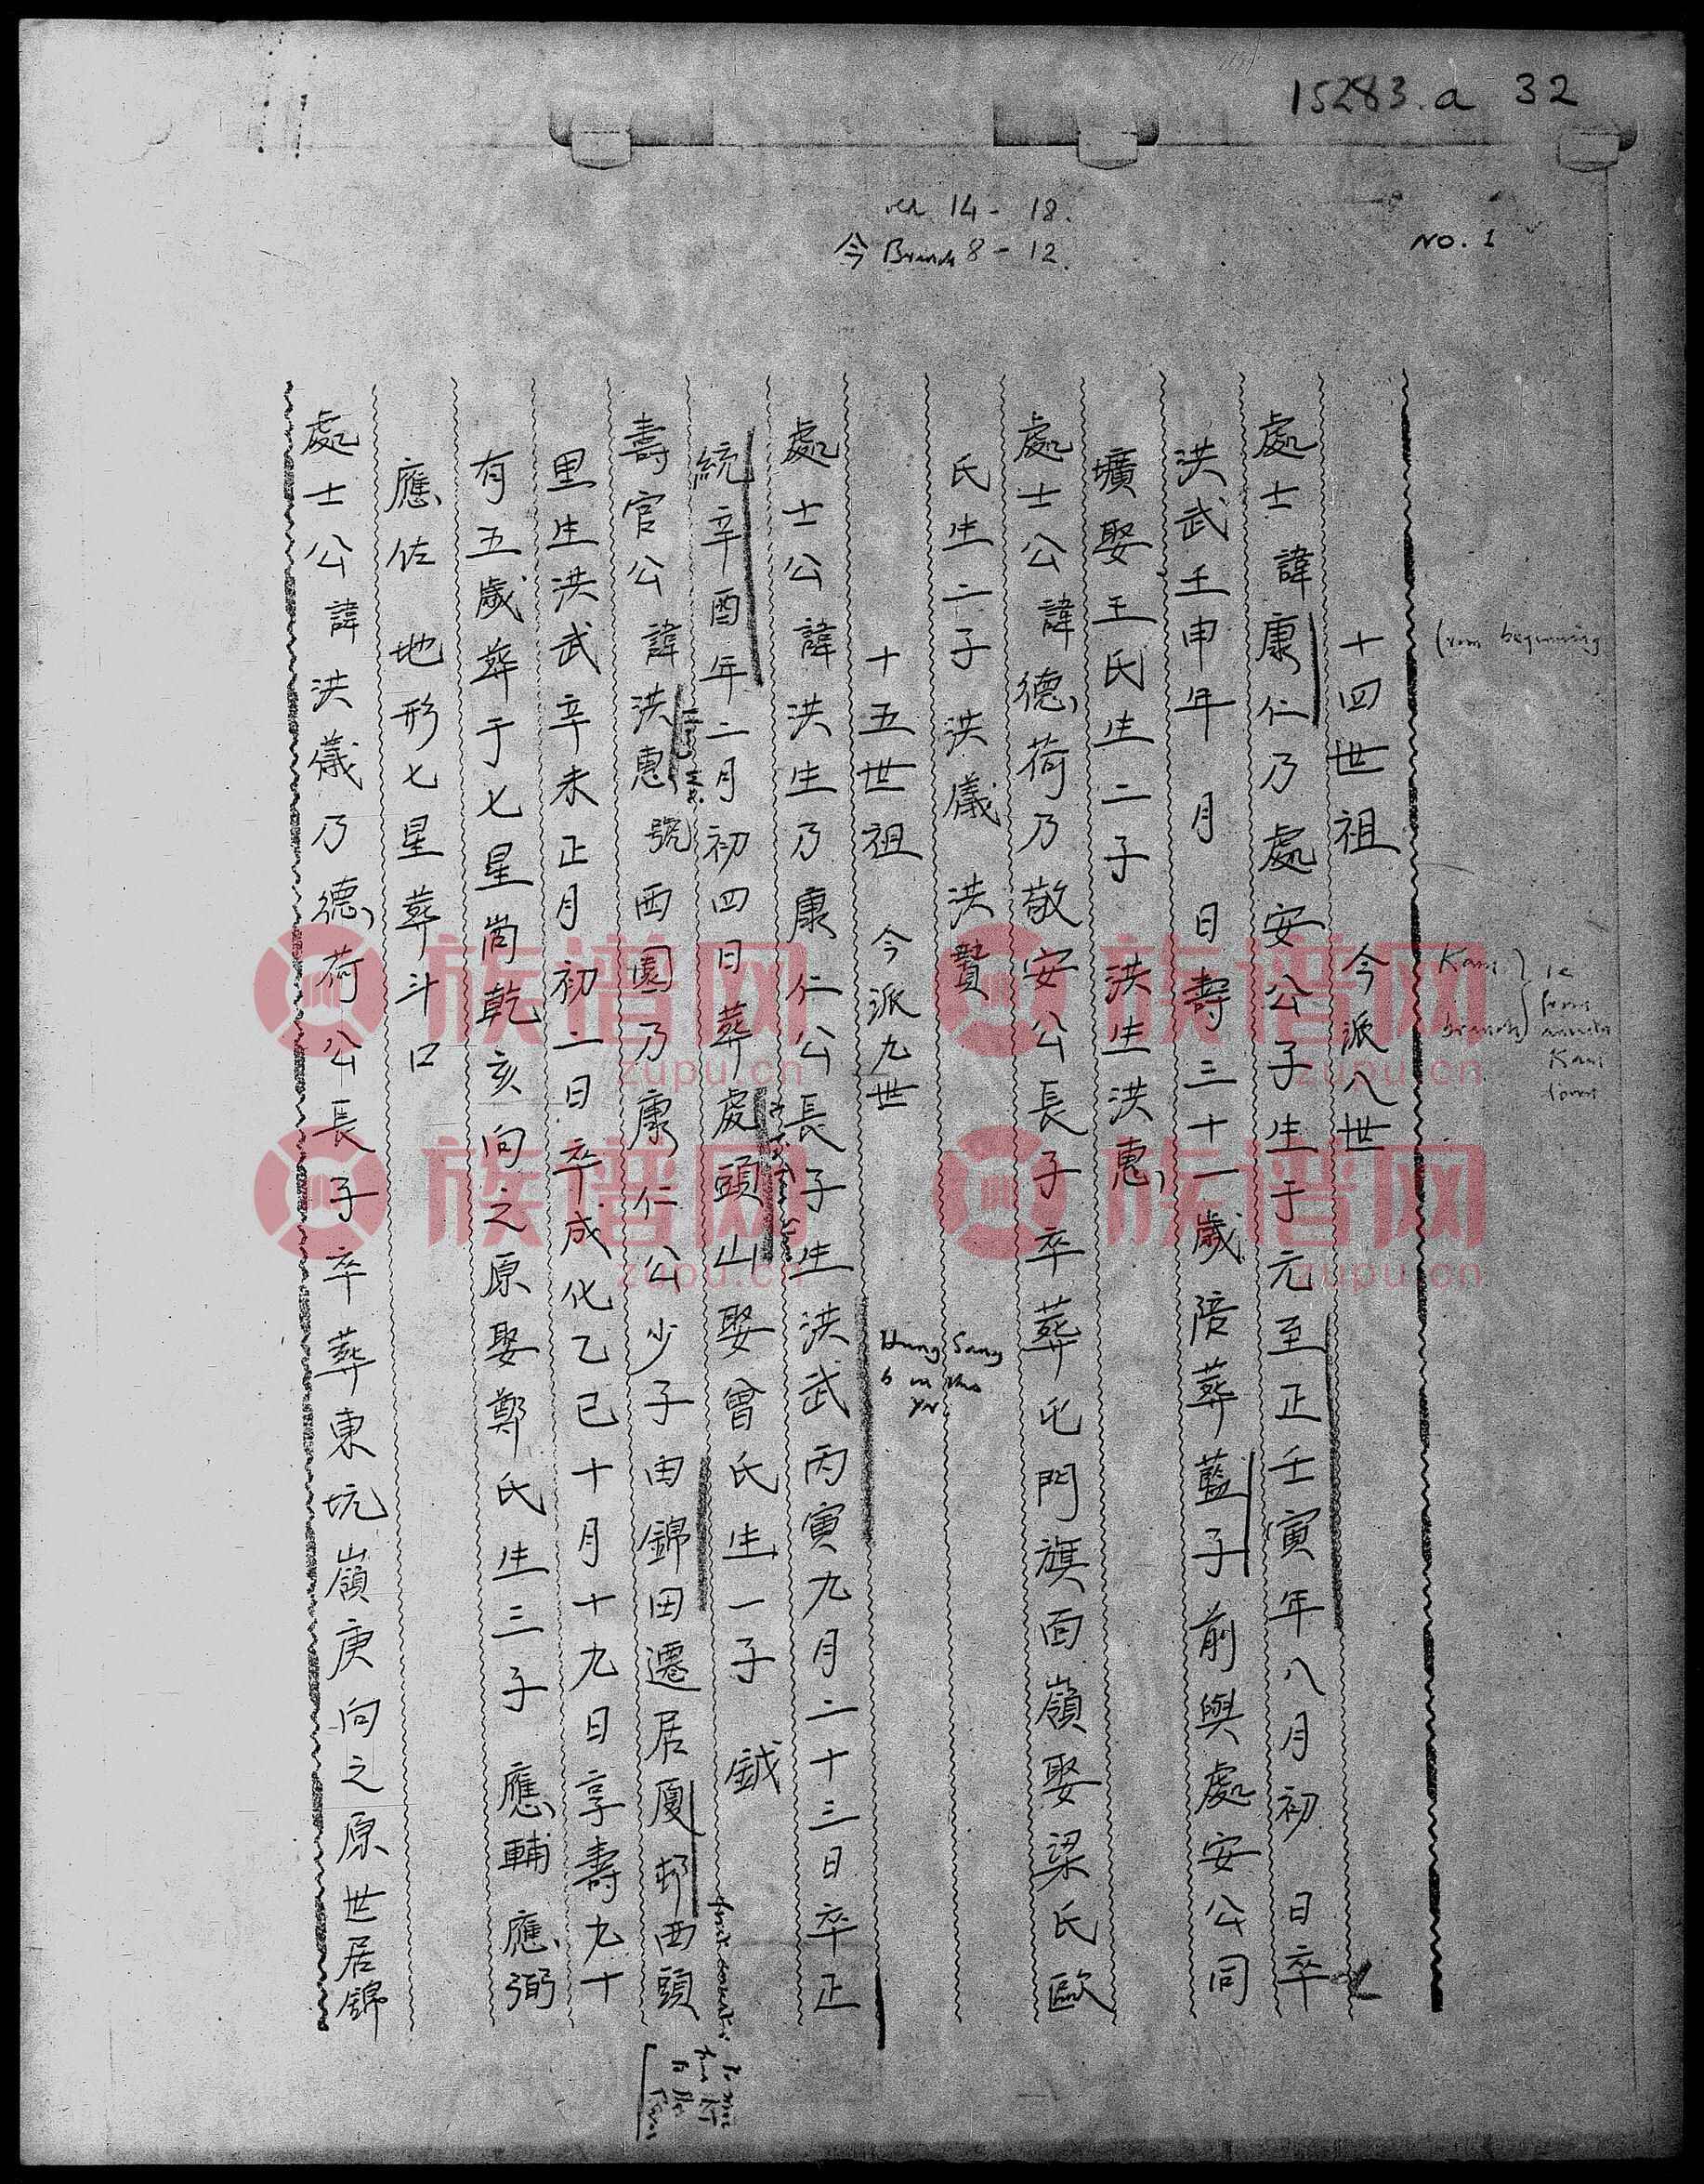 15283.a 32
14 - 18.
今 Branch 8 - 12.
No. 1
from beginning
十四世祖 今派八世
處士諱康仁乃處安公子生于元至正壬寅年八月初 日卒
洪武壬申年 月 日壽三十一歲陪葬藍子前與處安公同
壙娶王氏生二子 洪生洪惠
處士公諱德荷乃敬安公長子卒葬屯門旗面嶺娶梁氏歐
氏生二子 洪儀 洪贊
十五世祖 今派九世
處士公諱洪生乃康仁公長子生洪武丙寅九月二十三日卒正
統辛酉年二月初四日葬處頭山娶曾氏生一子 鉞
壽官公諱洪惠號西園乃康仁公少子由錦田遷居廈邨西頭
里生洪武辛未正月初二日卒成化乙巳十月十九日享壽九十
有五歲葬于七星崗乾亥向之原娶鄭氏生三子 應輔 應弼
應佐 地形七星葬斗口
處士公諱洪儀乃德荷公長子卒葬東坑嶺庚向之原世居錦
Kam branch
Kam
Hung Sang
b in this
yr.
族谱网
zupu.cn
族谱网
zupu.cn
族谱网
zupu.cn
族谱网
zupu.cn